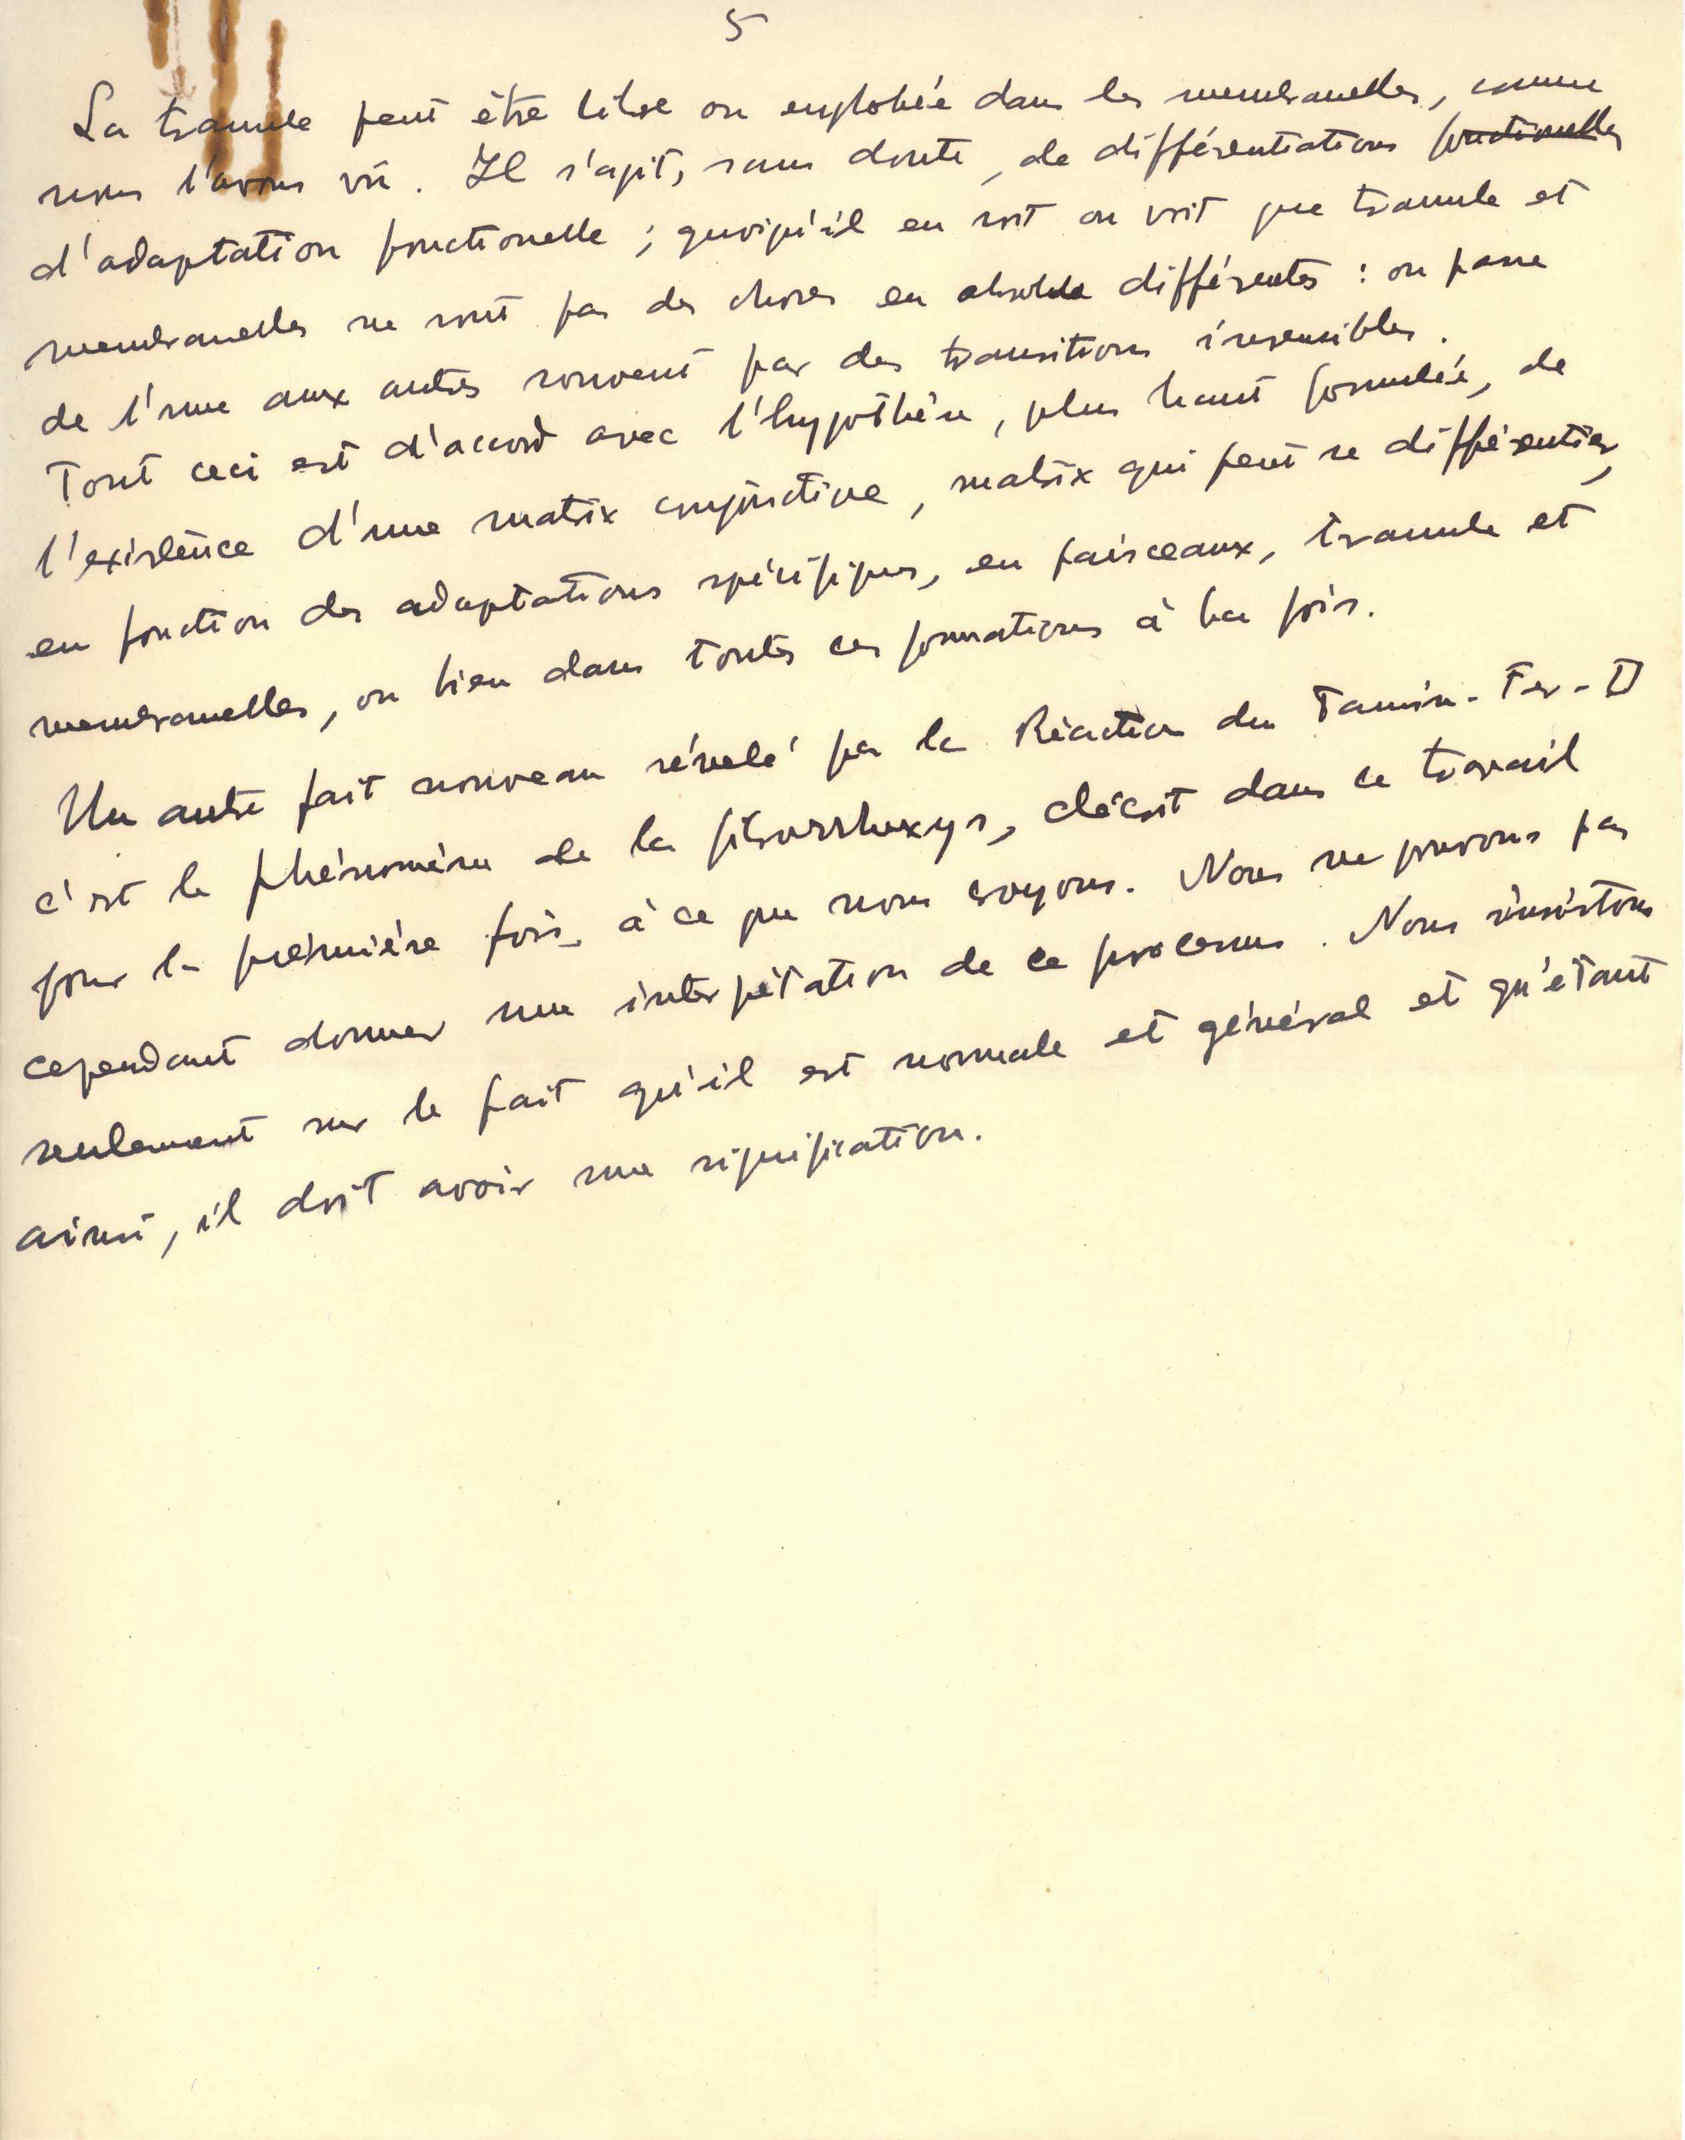 5
La tramule peut être libre ou englobée dans les membranelles, comme
nous l'avons vu. Il s'agit, sans doute, de différentiations fonctionelles
d'adaptation fonctionelle ; quoiqu'il en soit on voit que tramule et
membranelles ne sont pas des choses en absolu différentes : on passe
de l'une aux autres souvent par des transitions insensibles.
Tout ceci est d'accord avec l'hypothèse, plus haut formulée, de
l'existence d'une matrix conjonctive, matrix qui peut se différentier,
en fonction des adaptations spécifiques, en faisceaux, tramule et
membranelles, ou bien dans toutes ces formations à la fois.
Un autre fait nouveau révelé par la Réaction du Tannin-Fer-D
c'est le phénomène de la fibrorrhexys, décrit dans ce travail
pour la prémière fois, à ce que nous croyons. Nous ne pouvons pas
cependant donner une interpétation de ce processus. Nous insistons
seulement sur le fait qu'il est normale et général et qu'étant
ainsi, il doit avoir une signification.